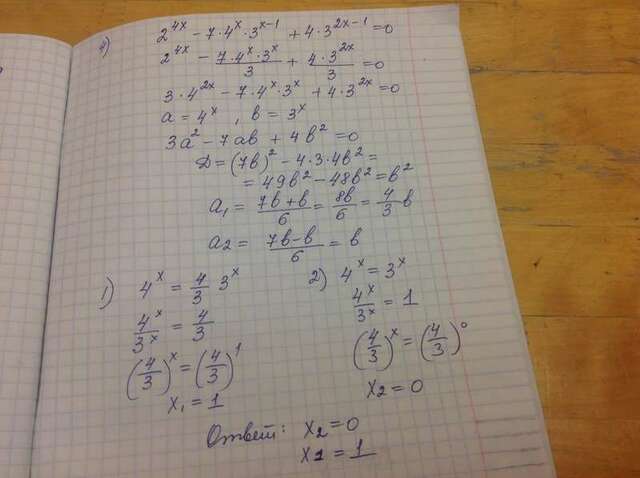 4) 2^{4x} - 7·4^x·3^{x-1} + 4·3^{2x-1} = 0
2^{4x} - \frac{7·4^x·3^x}{3} + \frac{4·3^{2x}}{3} = 0
3·4^{2x} - 7·4^x·3^x + 4·3^{2x} = 0
a = 4^x, b = 3^x
3a^2 - 7ab + 4b^2 = 0
D = (7b)^2 - 4·3·4b^2 =
= 49b^2 - 48b^2 = b^2
a_1 = \frac{7b+b}{6} = \frac{8b}{6} = \frac{4}{3}b
a_2 = \frac{7b-b}{6} = b
1) 4^x = \frac{4}{3} 3^x
\frac{4^x}{3^x} = \frac{4}{3}
(\frac{4}{3})^x = (\frac{4}{3})^1
x_1 = 1
2) 4^x = 3^x
\frac{4^x}{3^x} = 1
(\frac{4}{3})^x = (\frac{4}{3})^0
x_2 = 0
Ответ: x_2 = 0
x_1 = 1